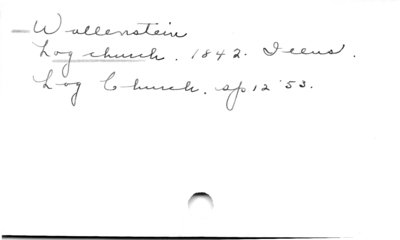 Wallenstein
Log church. 1842. Illus.
Log Church. ap 12 '53.